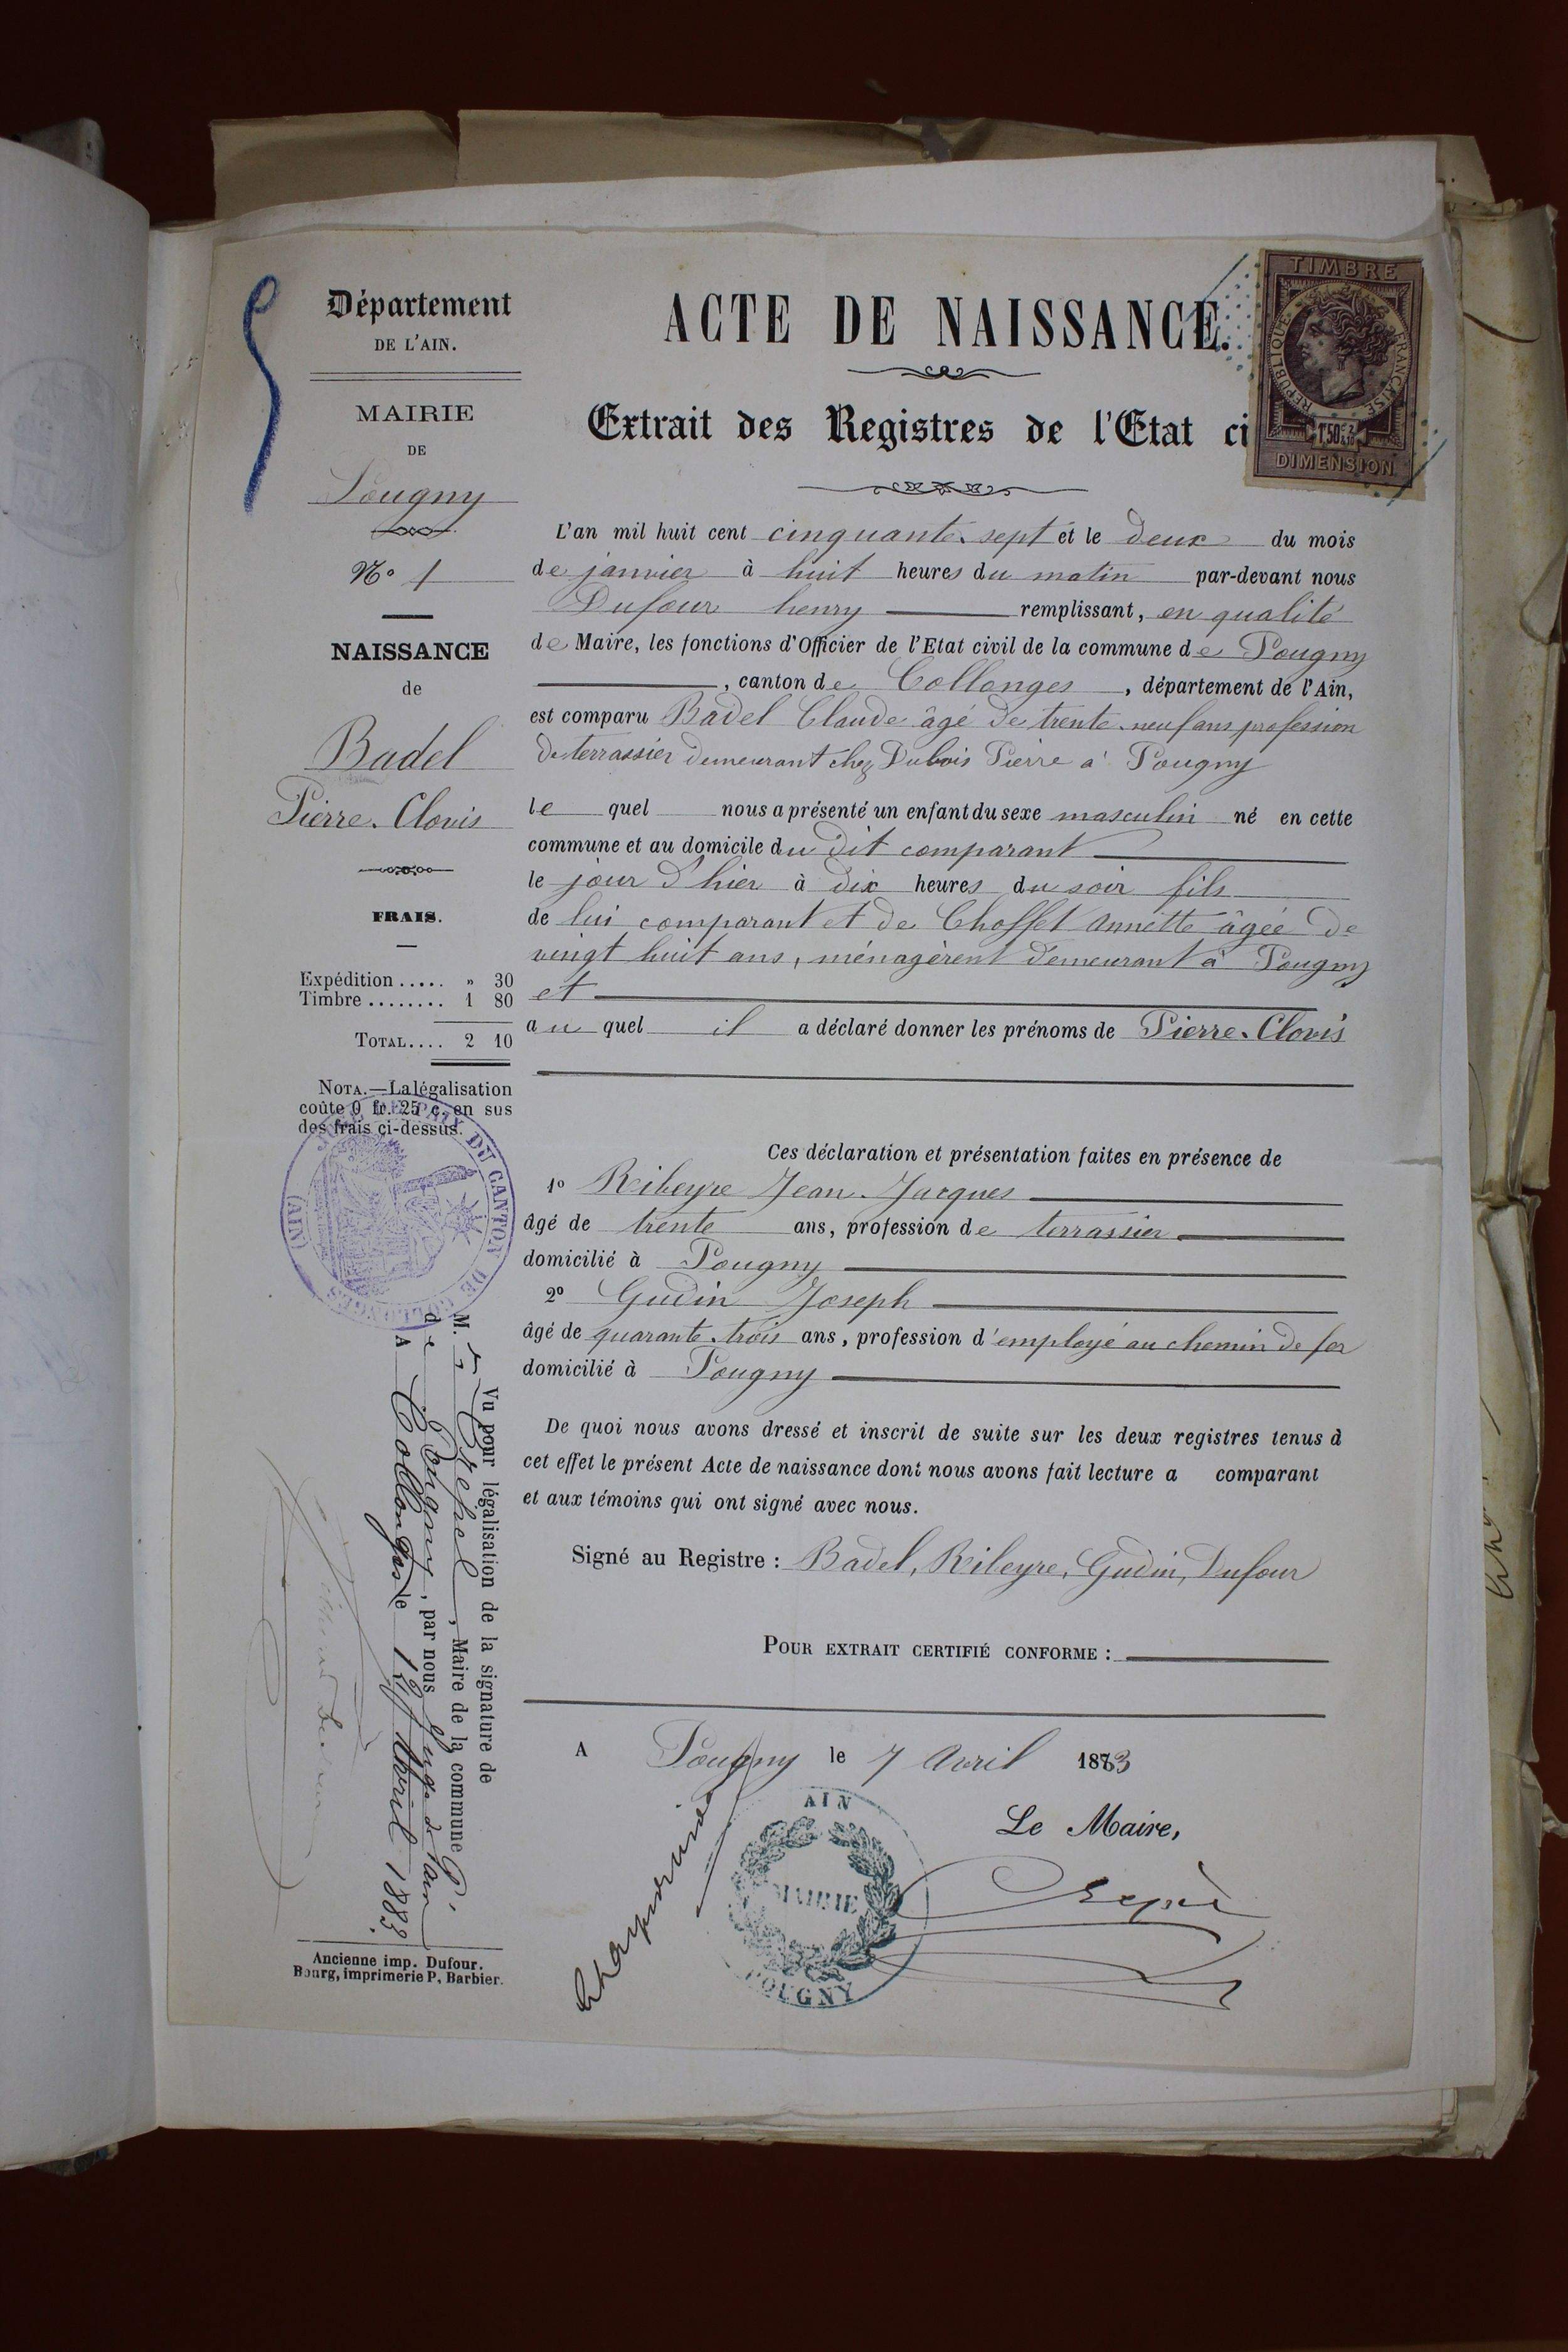 Département
DE L'AIN.
MAIRIE
DE
Pougny
N° 1
NAISSANCE
de
Badel
Pierre. Clovis
FRAIS.
Expédition ..... " 30
Timbre ........ 1 80
TOTAL.... 2 10
NOTA.—La légalisation
coûte 0 fr. 25 c. en sus
des frais ci-dessus.
PAIX DU CANTON DE COLLONGES
(AIN)
Vu pour légalisation de la signature de
M. , Maire de la commune
de Pougny, par nous Juge de Paix
A Collonges le 12 Avril 1883.
Ancienne imp. Dufour.
Bourg, imprimerie P. Barbier.
ACTE DE NAISSANCE.
Extrait des Registres de l'Etat ci
TIMBRE
RÉPUBLIQUE FRANÇAISE
1F50C 2/10
DIMENSION
L'an mil huit cent cinquante. sept et le deux du mois
de janvier à huit heures du matin par-devant nous
Dufour henry remplissant, en qualité
de Maire, les fonctions d'Officier de l'Etat civil de la commune de Pougny
, canton de Collonges, département de l'Ain,
est comparu Badel Claude âgé de trente. neuf ans profession
de terrassier demeurant chez Dubois Pierre à Pougny
le quel nous a présenté un enfant du sexe masculin né en cette
commune et au domicile du dit comparant
le jour d'hier à dix heures du soir fils
de lui comparant et de Chosset Annette âgée de
vingt huit ans, ménagèrent demeurant à Pougny
et
au quel il a déclaré donner les prénoms de Pierre. Clovis
Ces déclaration et présentation faites en présence de
1° Ribeyre Jean. Jacques
âgé de trente ans, profession de terrassier
domicilié à Pougny
2° Gudin Joseph
âgé de quarante. trois ans, profession d'employé au chemin de fer
domicilié à Pougny
De quoi nous avons dressé et inscrit de suite sur les deux registres tenus à
cet effet le présent Acte de naissance dont nous avons fait lecture a comparant
et aux témoins qui ont signé avec nous.
Signé au Registre : Badel, Ribeyre, Gudin, Dufour
POUR EXTRAIT CERTIFIÉ CONFORME :
A Pougny le 7 Avril 1883
Le Maire,
AIN
MAIRIE
POUGNY